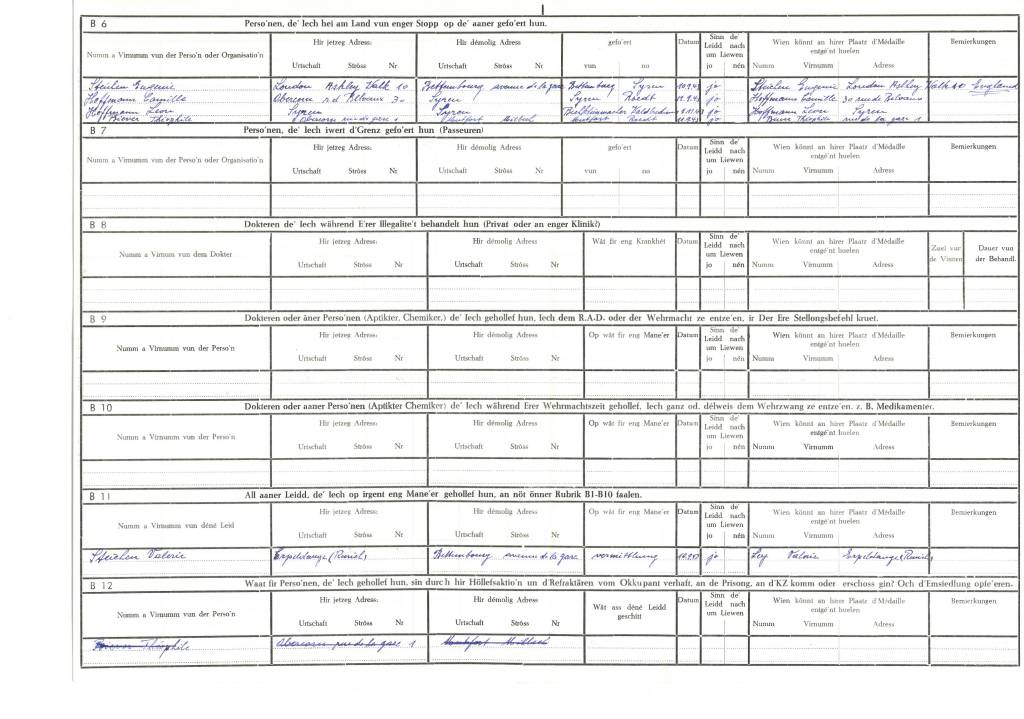 B 6 Perso'nen, de' Iech hei am Land vun enger Stopp op de' aaner gefo'ert hun.
Numm a Virnumm vun der Perso'n oder Organisatio'n Hir jetzeg Adress: Hir démolig Adress: gefo'ert Datum Sinn de' Leidd nach um Liewen Wien könnt an hirer Plaatz d'Médaille entgé'nt huelen Bemierkungen
Urtschaft Ströss Nr Urtschaft Ströss Nr vun no jo nén Numm Virnumm Adress
Steichen Eugenie London Ashley Walk 10 Bettembourg avenue de la gare Bettembourg Syren 10.9.43 jo Steichen Eugenie London Ashley Walk 10 England
Hoffmann Camille Abercorn r.d. Syren Syren Roedt jo Hoffmann Camille 30 rue de
Hoffmann Léon Syren Syren jo Hoffmann Léon Syren
Biever Théophile rue de la gare 1 Moutfort Milbech Moutfort Roedt jo Biever Théophile rue de la gare 1
B 7 Perso'nen, de' Iech iwert d'Grenz gefo'ert hun (Passeuren)
Numm a Virnumm vun der Perso'n oder Organisatio'n Hir jetzeg Adress: Hir démolig Adress: gefo'ert Datum Sinn de' Leidd nach um Liewen Wien könnt an hirer Plaatz d'Médaille entgé'nt huelen Bemierkungen
Urtschaft Ströss Nr Urtschaft Ströss Nr vun no jo nén Numm Virnumm Adress
B 8 Dokteren de' Iech während E'rer Illegalite't behandelt hun (Privat oder an enger Klinik?)
Numm a Virnum vun dem Dokter Hir jetzeg Adress: Hir démolig Adress Wât fir eng Krankhét Datum Sinn de' Leidd nach um Liewen Wien könnt an hirer Plaatz d'Médaille entgé'nt huelen Zuel vur de Visiten Dauer vun der Behandl.
Urtschaft Ströss Nr Urtschaft Ströss Nr jo nén Numm Virnumm Adress
B 9 Dokteren oder âner Perso'nen (Aptikter, Chemiker,) de' Iech gehollef hun, Iech dem R.A.D. oder der Wehrmacht ze entze'en, ir Der Ere Stellongsbefehl kruet.
Numm a Virnumm vun der Perso'n Hir jetzeg Adress: Hir démolig Adress Op wât fir eng Mane'er Datum Sinn de' Leidd nach um Liewen Wien könnt an hirer Plaatz d'Médaille entgé'nt huelen Bemierkungen
Urtschaft Ströss Nr Urtschaft Ströss Nr jo nén Numm Virnumm Adress
B 10 Dokteren oder aaner Perso'nen (Aptikter Chemiker) de' Iech während Erer Wehrmachtszeit gehollef, Iech ganz od. délweis dem Wehrzwang ze entze'en. z. B. Medikamenter.
Numm a Virnumm vun der Perso'n Hir jetzeg Adress: Hir démolig Adress Op wât fir eng Mane'er Datum Sinn de' Leidd nach um Liewen Wien könnt an hirer Plaatz d'Médaille entgé'nt huelen Bemierkungen
Urtschaft Ströss Nr Urtschaft Ströss Nr jo nén Numm Virnumm Adress
B 11 All aaner Leidd, de' Iech op irgent eng Mane'er gehollef hun, an nöt önner Rubrik B1-B10 faalen.
Numm a Virnumm vun déné Leid Hir jetzeg Adress: Hir démolig Adress Op wât fir eng Mane'er Datum Sinn de' Leidd nach um Liewen Wien könnt an hirer Plaatz d'Médaille entgé'nt huelen Bemierkungen
Urtschaft Ströss Nr Urtschaft Ströss Nr jo nén Numm Virnumm Adress
Steichen Valerie Erpeldange Bettembourg avenue de la gare vermittlung jo Valerie Erpeldange
B 12 Waat fir Perso'nen, de' Iech gehollef hun, sin durch hir Höllefsaktio'n un d'Refraktären vom Okkupant verhaft, an de Prisong, an d'KZ komm oder erschoss gin? Och d'Emsiedlung opfe'eren.
Numm a Virnumm vun der Perso'n Hir jetzeg Adress: Hir démolig Adress Wât ass déné Leidd geschitt Datum Sinn de' Leidd nach um Liewen Wien könnt an hirer Plaatz d'Médaille entgé'nt huelen Bemierkungen
Urtschaft Ströss Nr Urtschaft Ströss Nr jo nén Numm Virnumm Adress
Biever Théophile Abercorn rue de la gare 1 Moutfort Milbech